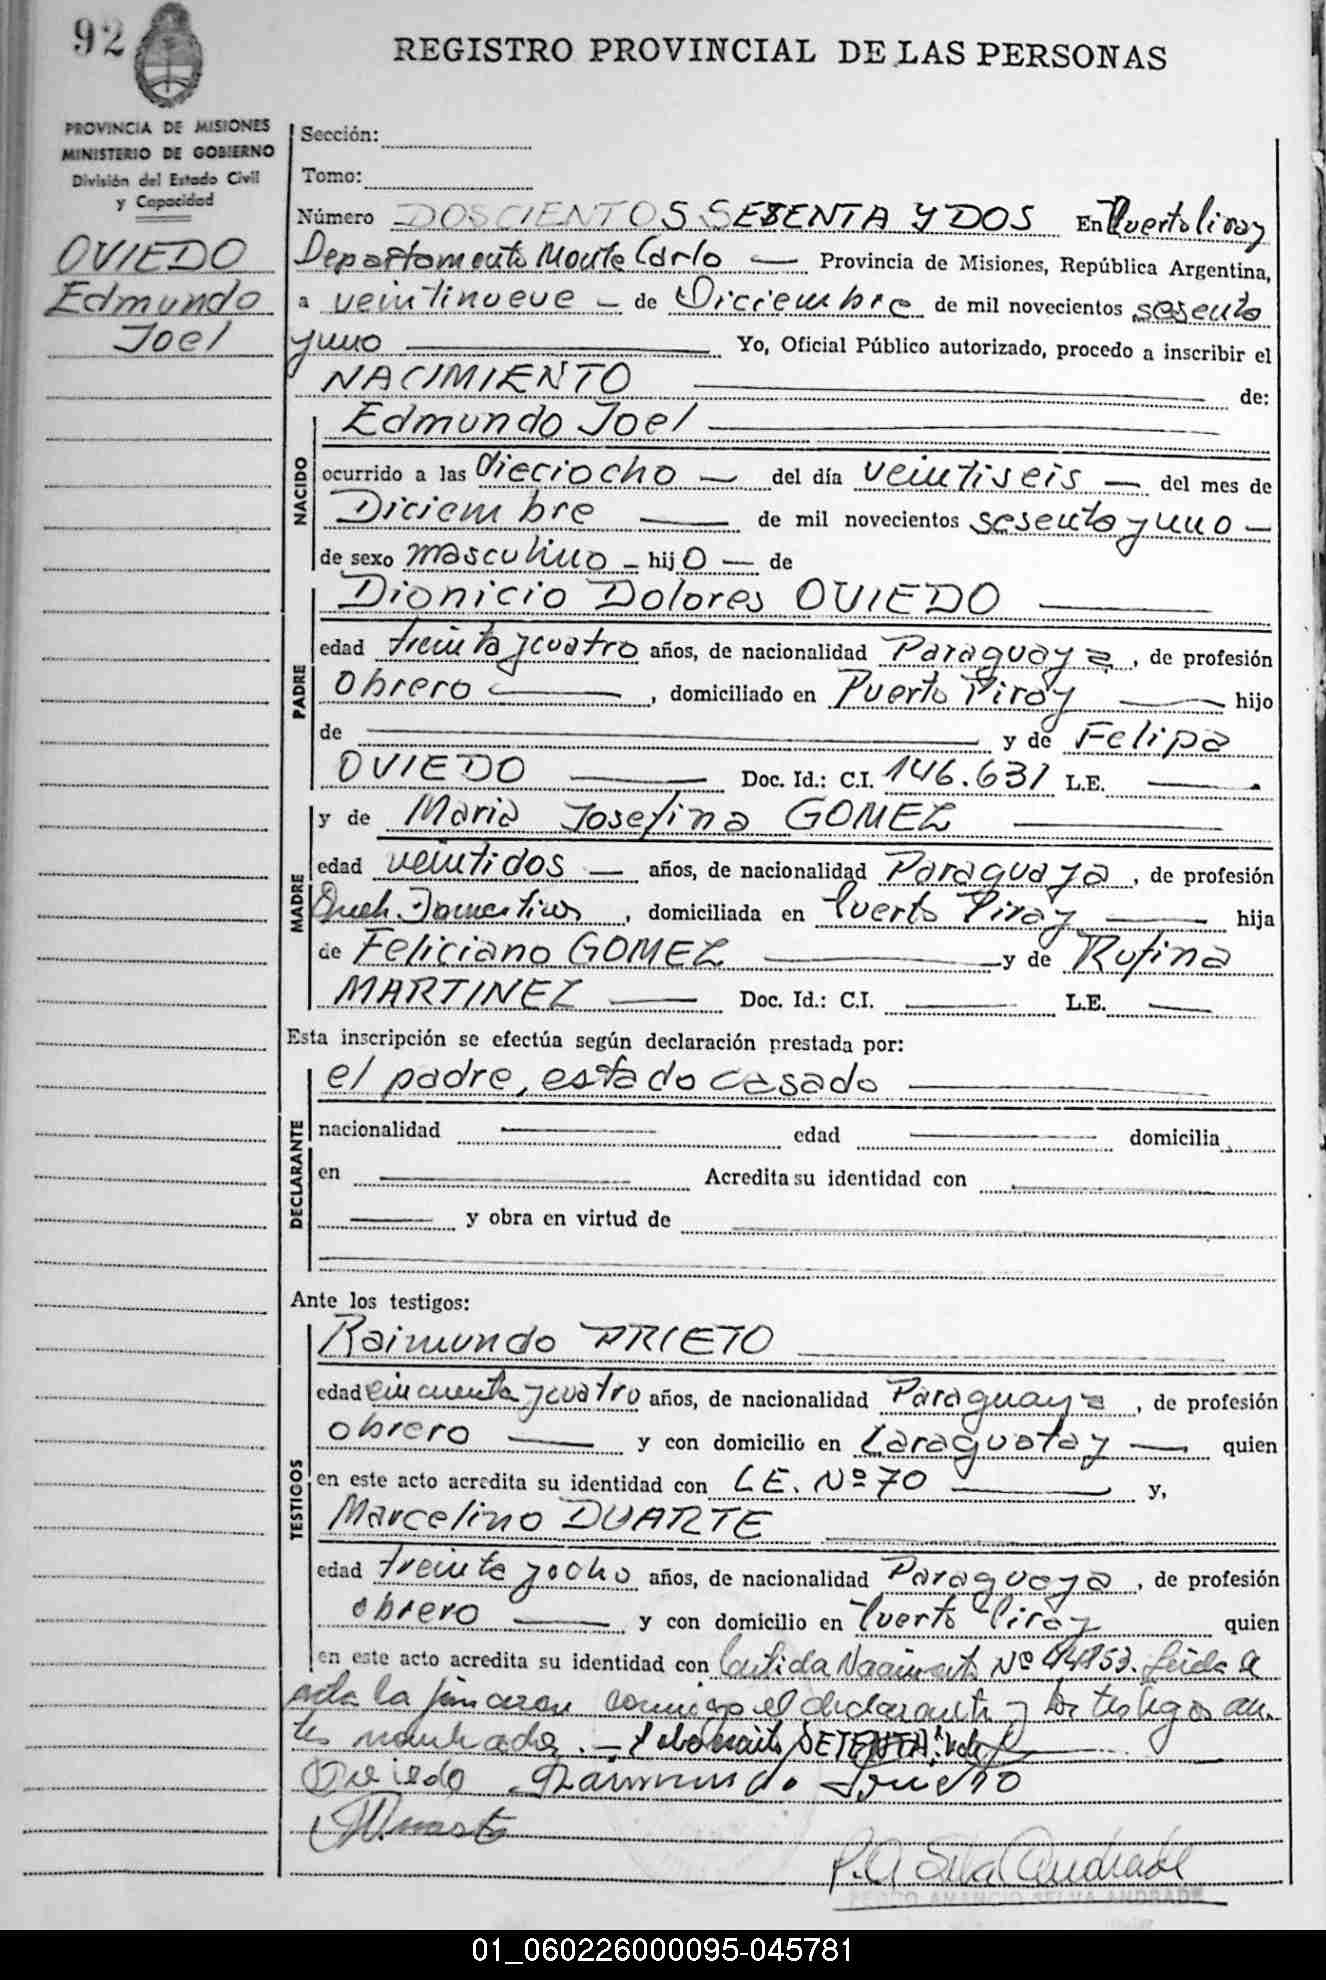 92
REGISTRO PROVINCIAL DE LAS PERSONAS
PROVINCIA DE MISIONES
MINISTERIO DE GOBIERNO
División del Estado Civil
y Capacidad
OVIEDO
Edmundo
Joel
Sección:
Tomo:
Número DOSCIENTOS SETENTA Y DOS En Puerto Piray
Departamento Monte Carlo — Provincia de Misiones, República Argentina,
a veintinueve — de Diciembre de mil novecientos sesenta
y uno — Yo, Oficial Público autorizado, procedo a inscribir el
NACIMIENTO — de:
NACIDO
Edmundo Joel —
ocurrido a las dieciocho — del día veintiseis — del mes de
Diciembre — de mil novecientos sesenta y uno —
de sexo masculino — hijo — de
PADRE
Dionicio Dolores OVIEDO —
edad treinta y cuatro años, de nacionalidad Paraguaya, de profesión
obrero —, domiciliado en Puerto Piray — hijo
de — y de Felipa
OVIEDO — Doc. Id.: C.I. 146.631 L.E. —
MADRE
y de Maria Josefina GOMEZ —
edad veintidos — años, de nacionalidad Paraguaya, de profesión
Queh. Domesticos, domiciliada en Puerto Piray — hija
de Feliciano GOMEZ — y de Rufina
MARTINEZ — Doc. Id.: C.I. — L.E. —
Esta inscripción se efectúa según declaración prestada por:
DECLARANTE
el padre, estado casado —
nacionalidad — edad — domicilia
en — Acredita su identidad con —
— y obra en virtud de —
Ante los testigos:
TESTIGOS
Raimundo PRIETO
edad cincuenta y cuatro años, de nacionalidad Paraguaya, de profesión
obrero — y con domicilio en Caraguatay — quien
en este acto acredita su identidad con L.E. Nº 70 — y,
Marcelino DUARTE
edad treinta y ocho años, de nacionalidad Paraguaya, de profesión
obrero — y con domicilio en Puerto Piray quien
en este acto acredita su identidad con Nacimiento Nº Leida el
acta la firmaron conmigo el declarante y los testigos an-
tes nombrados. — SETENTA: Vale
Oviedo Raimundo Prieto
MDuarte
P.A Selva Andrade
PEDRO AMANCIO SELVA ANDRADE
01_060226000095-045781